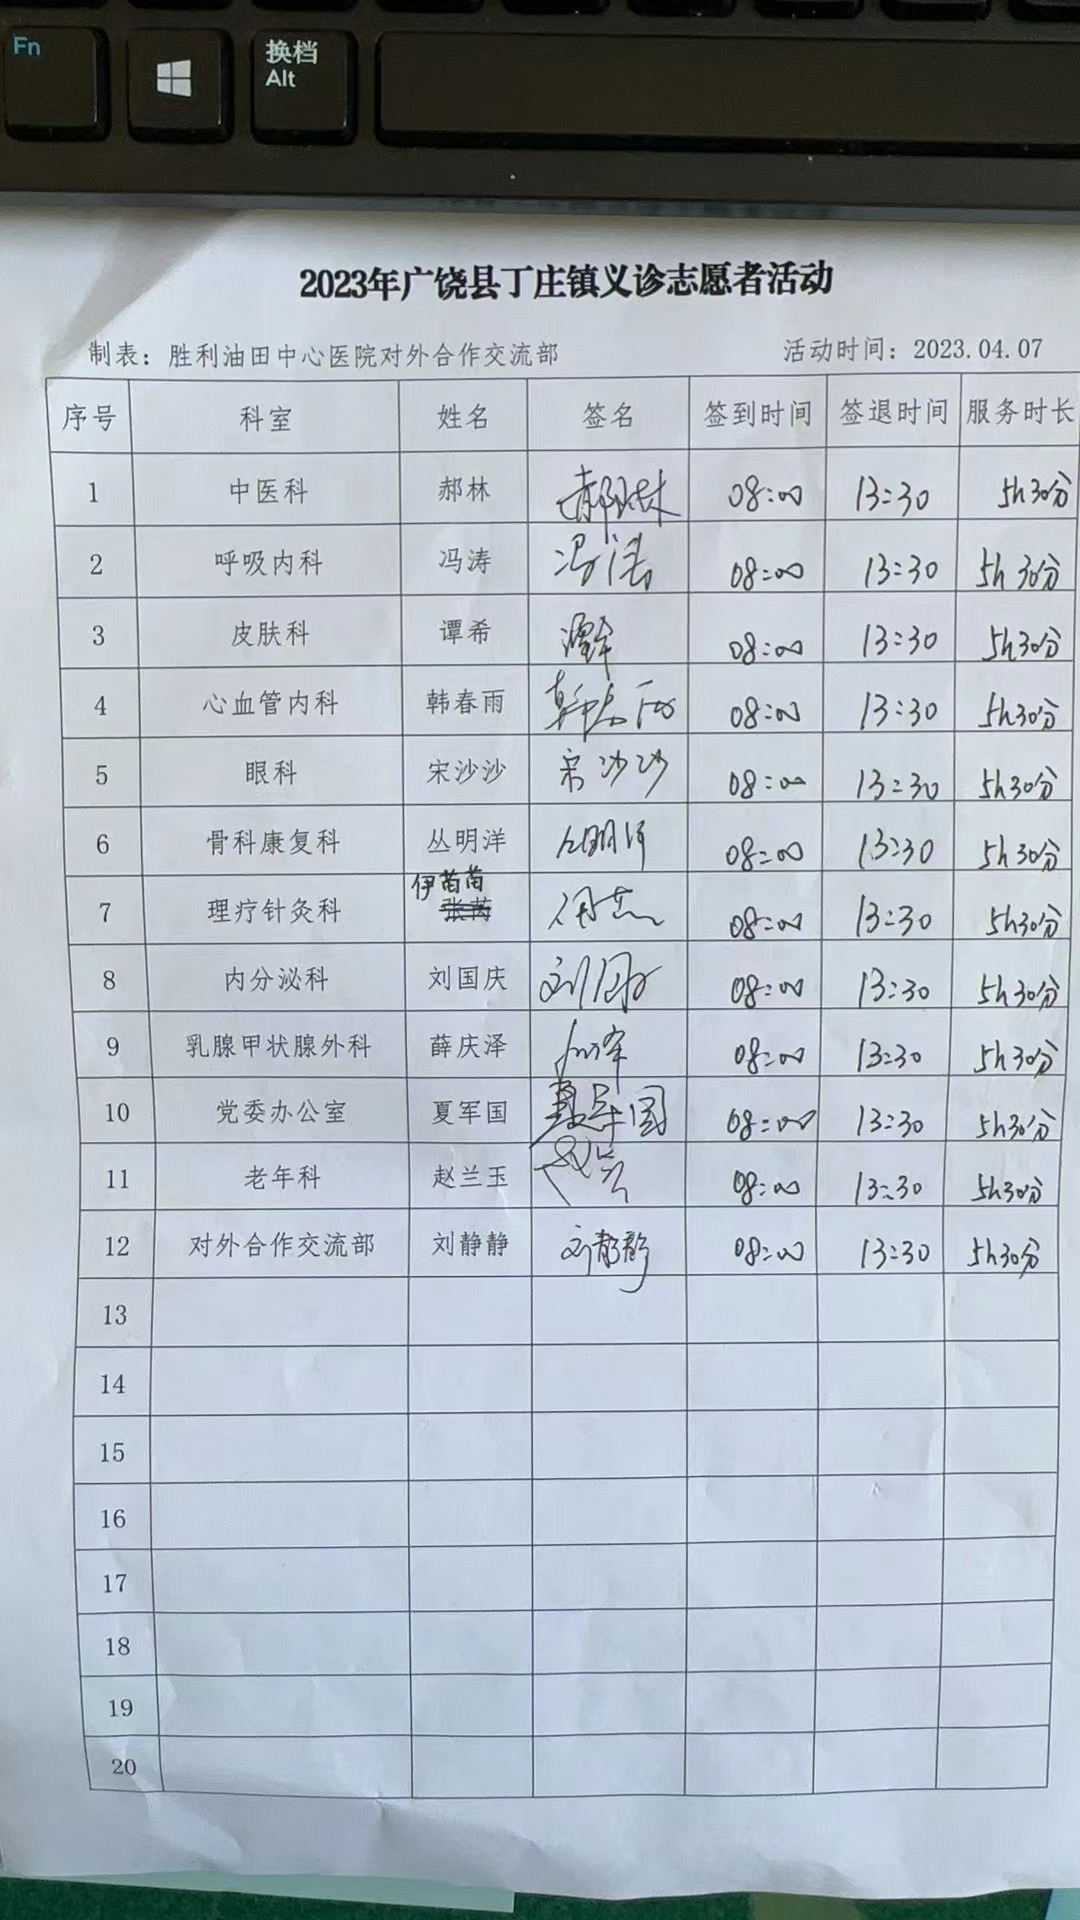 Fn
换档
Alt
2023年广饶县丁庄镇义诊志愿者活动
制表：胜利油田中心医院对外合作交流部 活动时间：2023.04.07
序号 科室 姓名 签名 签到时间 签退时间 服务时长
1 中医科 郝林 郝林 08:00 13:30 5h30分
2 呼吸内科 冯涛 冯涛 08:00 13:30 5h30分
3 皮肤科 谭希 08:00 13:30 5h30分
4 心血管内科 韩春雨 韩春雨 08:00 13:30 5h30分
5 眼科 宋沙沙 宋沙沙 08:00 13:30 5h30分
6 骨科康复科 丛明洋 丛明洋 08:00 13:30 5h30分
伊苗苗
7 理疗针灸科 08:00 13:30 5h30分
8 内分泌科 刘国庆 刘国庆 08:00 13:30 5h30分
9 乳腺甲状腺外科 薛庆泽 08:00 13:30 5h30分
10 党委办公室 夏军国 夏军国 08:00 13:30 5h30分
11 老年科 赵兰玉 08:00 13:30 5h30分
12 对外合作交流部 刘静静 刘静静 08:00 13:30 5h30分
13
14
15
16
17
18
19
20